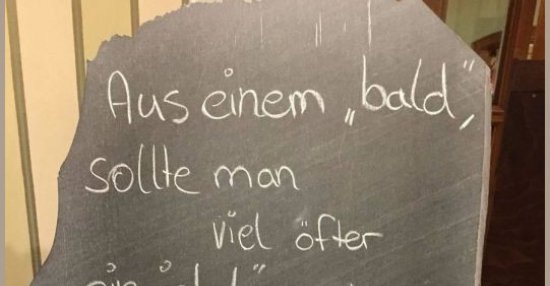 Aus einem „bald“,
sollte man
viel öfter